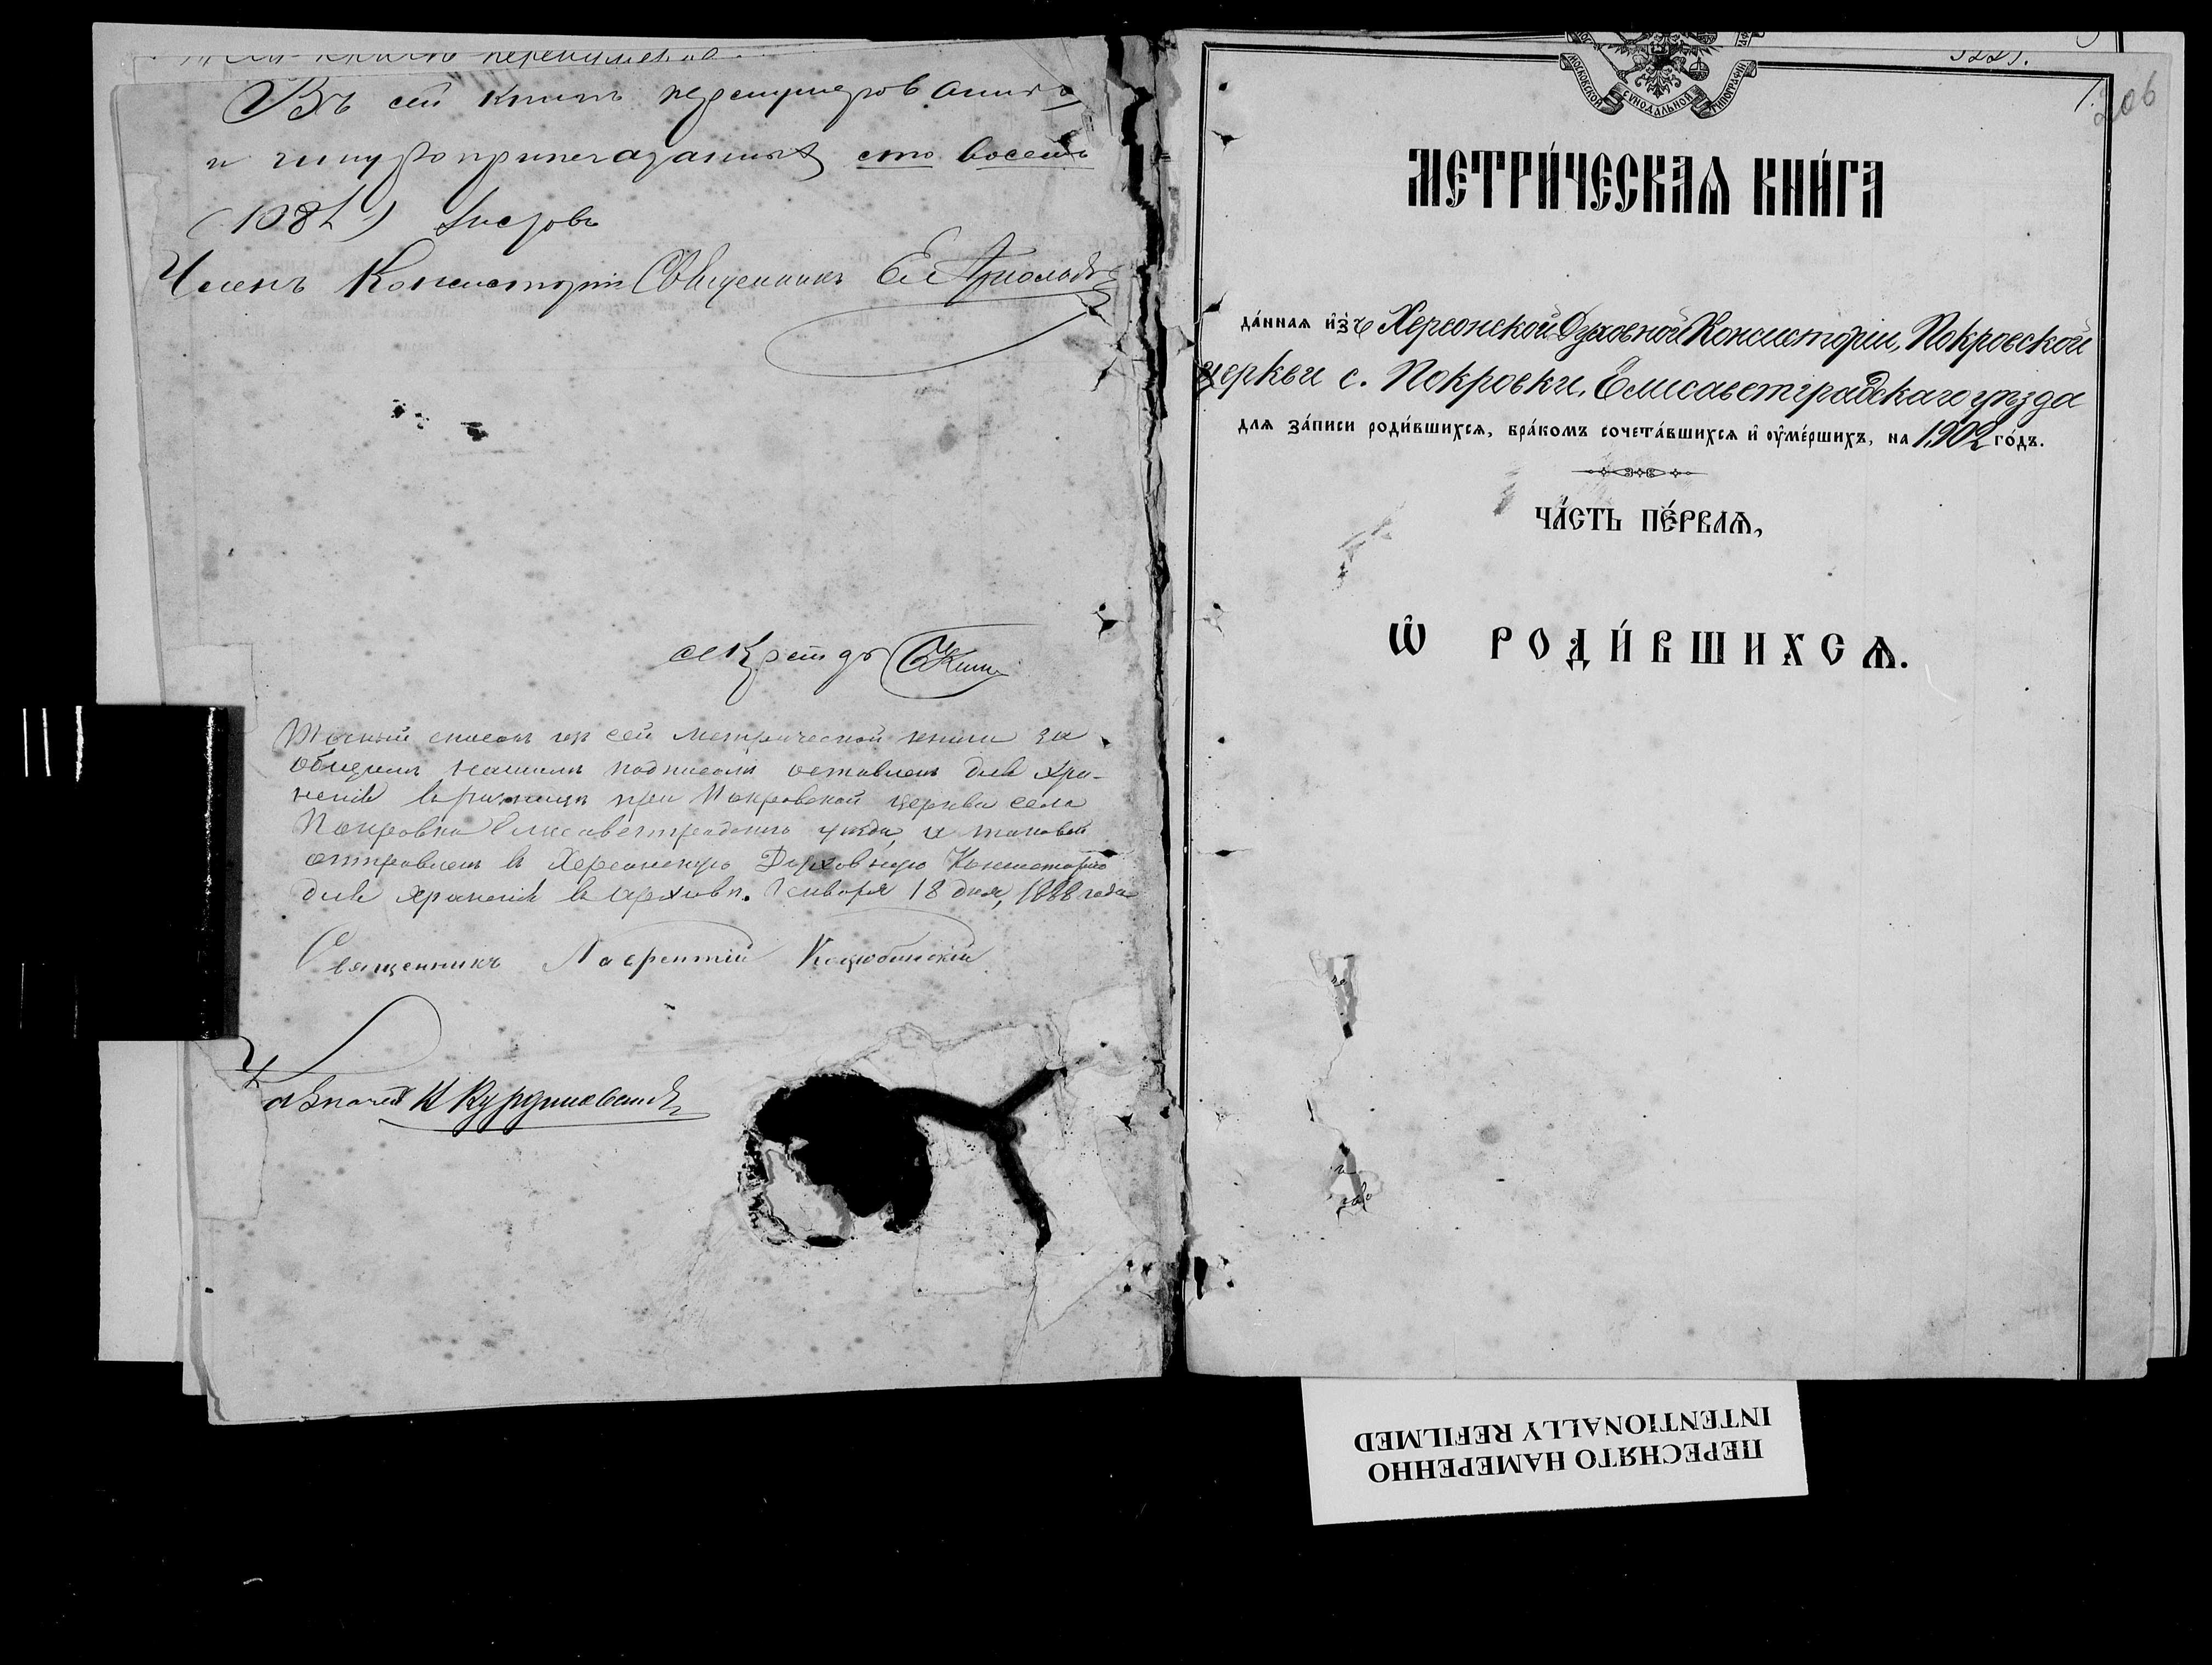 Въ сей книгѣ перенумерованныхъ
и шнуроприпечатанныхъ сто восемь
(108 л.) листовъ
Членъ Консисторіи Священникъ
Секретарь
Точный списокъ изъ сей метрической книги за
общимъ нашимъ подписомъ оставленъ для хра-
ненія въ ризницѣ при Покровской церкви села
Покровки Елисаветградскаго уѣзда, и таковой
отправленъ въ Херсонскую Духовную Консисторію
для храненія въ архивѣ. Января 18 дня, 1888 года
Священникъ Лаврентій Коцюбинскій
МОСКОВСКОЙ СѴНОДАЛЬНОЙ ТИПОГРАФІИ
1.
206
МЕТРИ́ЧЕСКАѦ КНИ́ГА
да́нная и҆зъ Херсонской Духовной Консисторіи, Покровской
церкви с. Покровки, Елисаветградскаго уѣзда
для за́писи роди́вшихся, бра́комъ сочета́вшихся и҆ оу҆ме́ршихъ, на 1902 го́дъ.
ЧА́СТЬ ПЕ́РВАѦ,
Ѡ҆ РОДИ́ВШИХСѦ.
ПЕРЕСНЯТО НАМЕРЕННО
INTENTIONALLY REFILMED